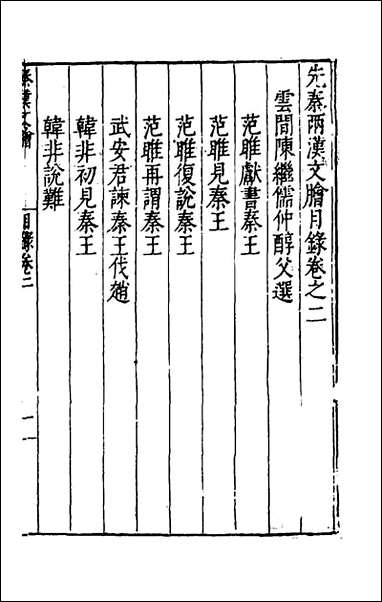 先秦兩漢文膾目錄卷之二
雲間陳繼儒仲醇父選
范雎獻書秦王
范雎見秦王
范雎復說秦王
范雎再謂秦王
武安君諫秦王伐趙
韓非初見秦王
韓非說難
秦漢文膾
目錄卷二
一